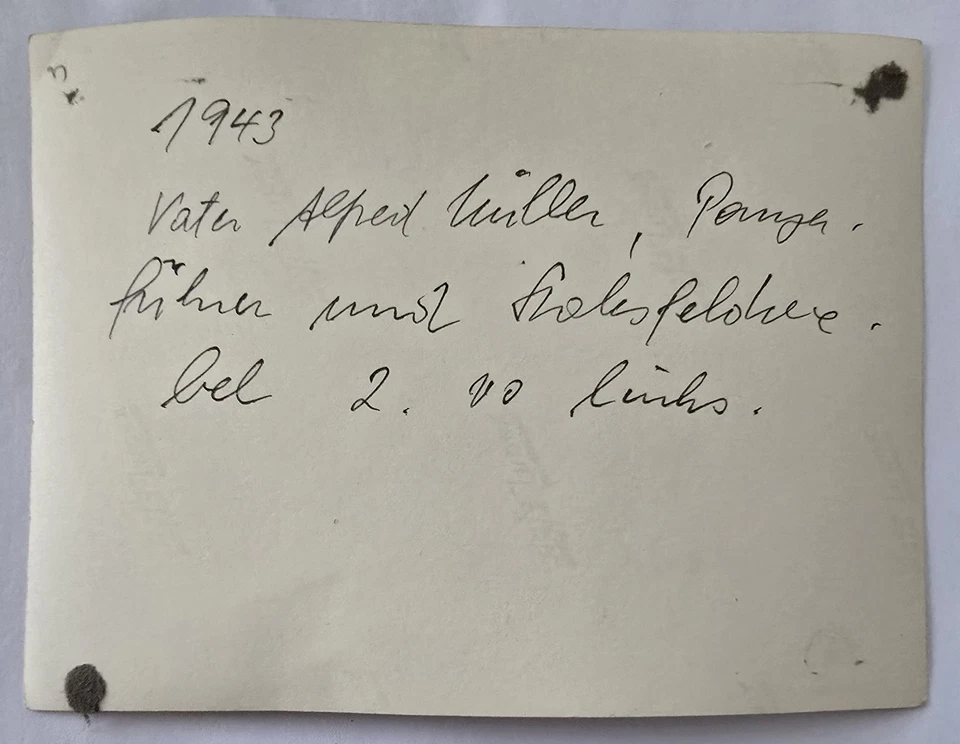 1943
Vater Alfred Müller, Panzer-
führer und Stabsfeldwe-
bel 2. vo links.